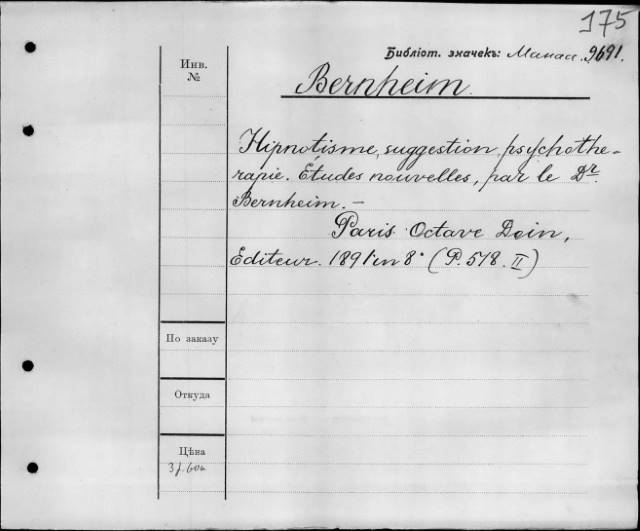 175
Библіот. значекъ: Манас. 9691.
Инв.
№
Bernheim.
Hipnotisme, suggestion, psychothe-
rapie. Études nouvelles, par le Dr.
Bernheim. —
Paris Octave Doin,
Editeur. 1891 in 8° (P. 518. II)
По заказу
Откуда
Цѣна